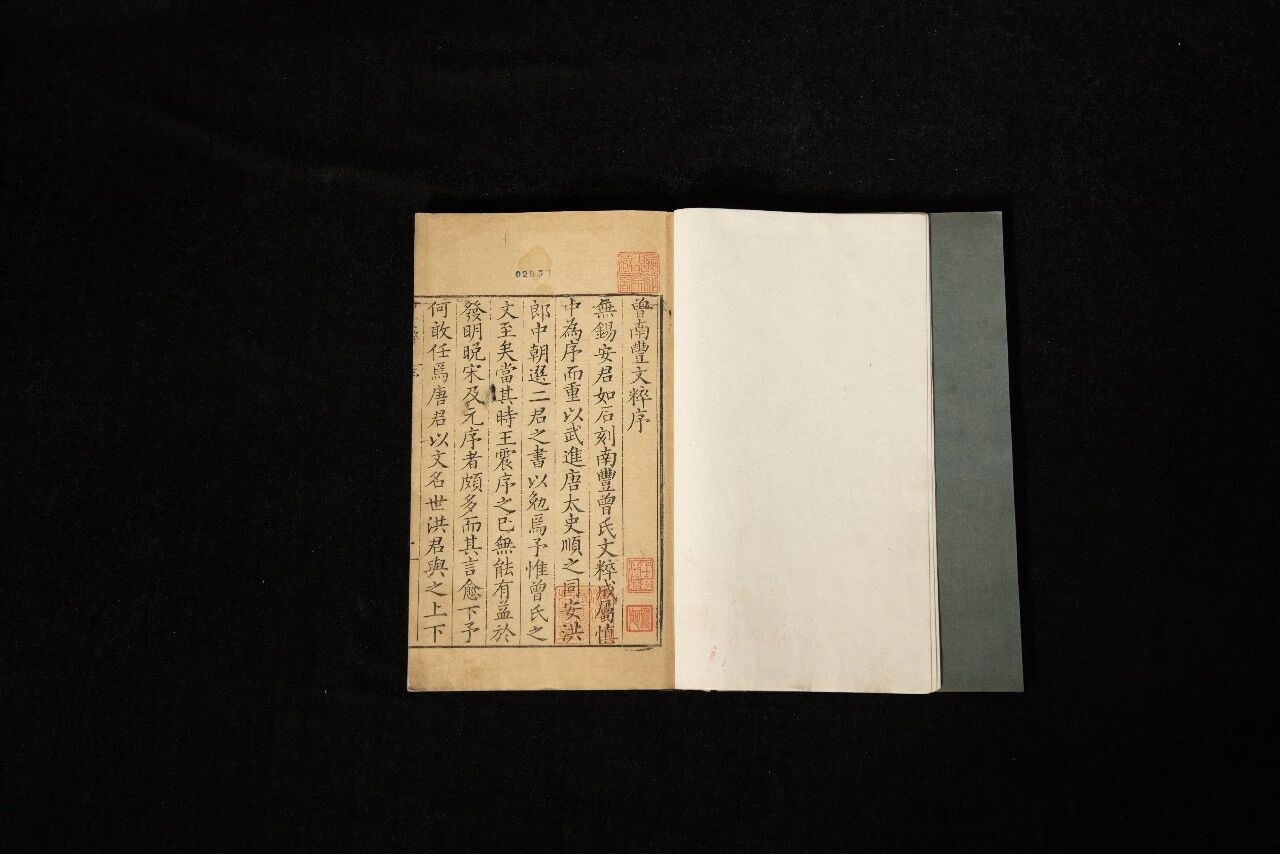 曾南豐文粹序
無錫安君如石刻南豐曾氏文粹成屬慎
中為序而重以武進唐太史順之同安洪
郎中朝選二君之書以勉焉予惟曾氏之
文至矣當其時王震序之已無能有益於
發明晚宋及元序者頗多而其言愈下予
何敢任焉唐君以文名世洪君與之上下